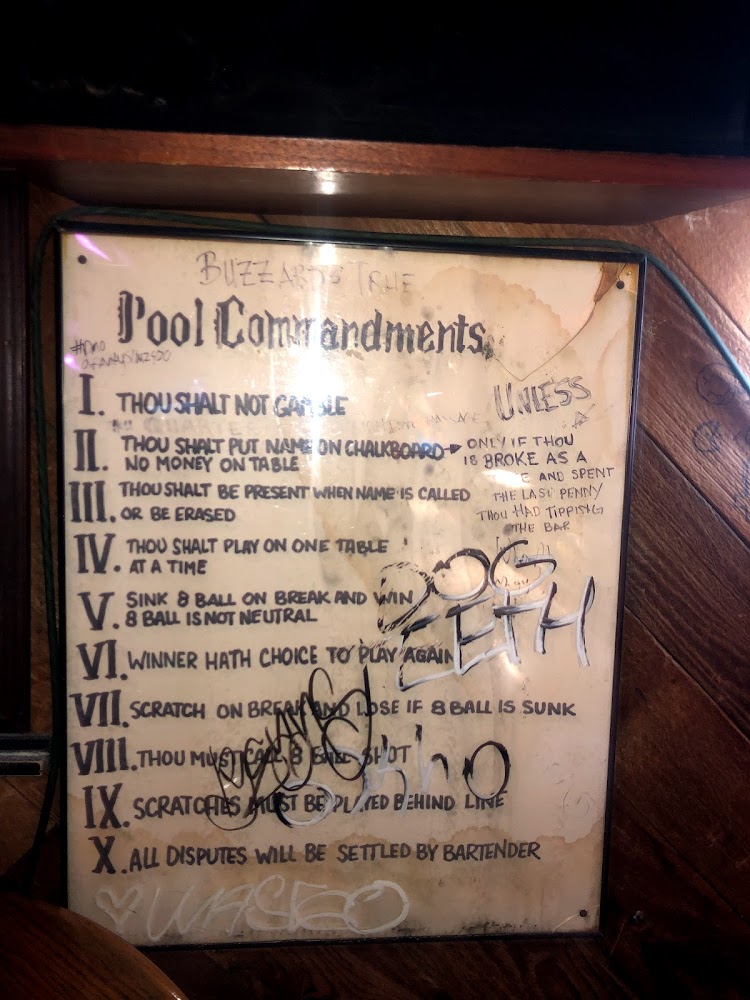 Pool Commandments
I. THOU SHALT NOT GAMBLE
UNLESS
II. THOU SHALT PUT NAME ON CHALKBOARD →
NO MONEY ON TABLE
ONLY IF THOU
IS BROKE AS A
AND SPENT
THE LAST PENNY
THOU HAD TIPPING
THE BAR
III. THOU SHALT BE PRESENT WHEN NAME IS CALLED
OR BE ERASED
IV. THOU SHALT PLAY ON ONE TABLE
AT A TIME
V. SINK 8 BALL ON BREAK AND WIN
8 BALL IS NOT NEUTRAL
DOG
VI. WINNER HATH CHOICE TO PLAY AGAIN
VII. SCRATCH ON BREAK AND LOSE IF 8 BALL IS SUNK
VIII. THOU MUST CALL 8 BALL SHOT
IX. SCRATCHES MUST BE PLAYED BEHIND LINE
X. ALL DISPUTES WILL BE SETTLED BY BARTENDER